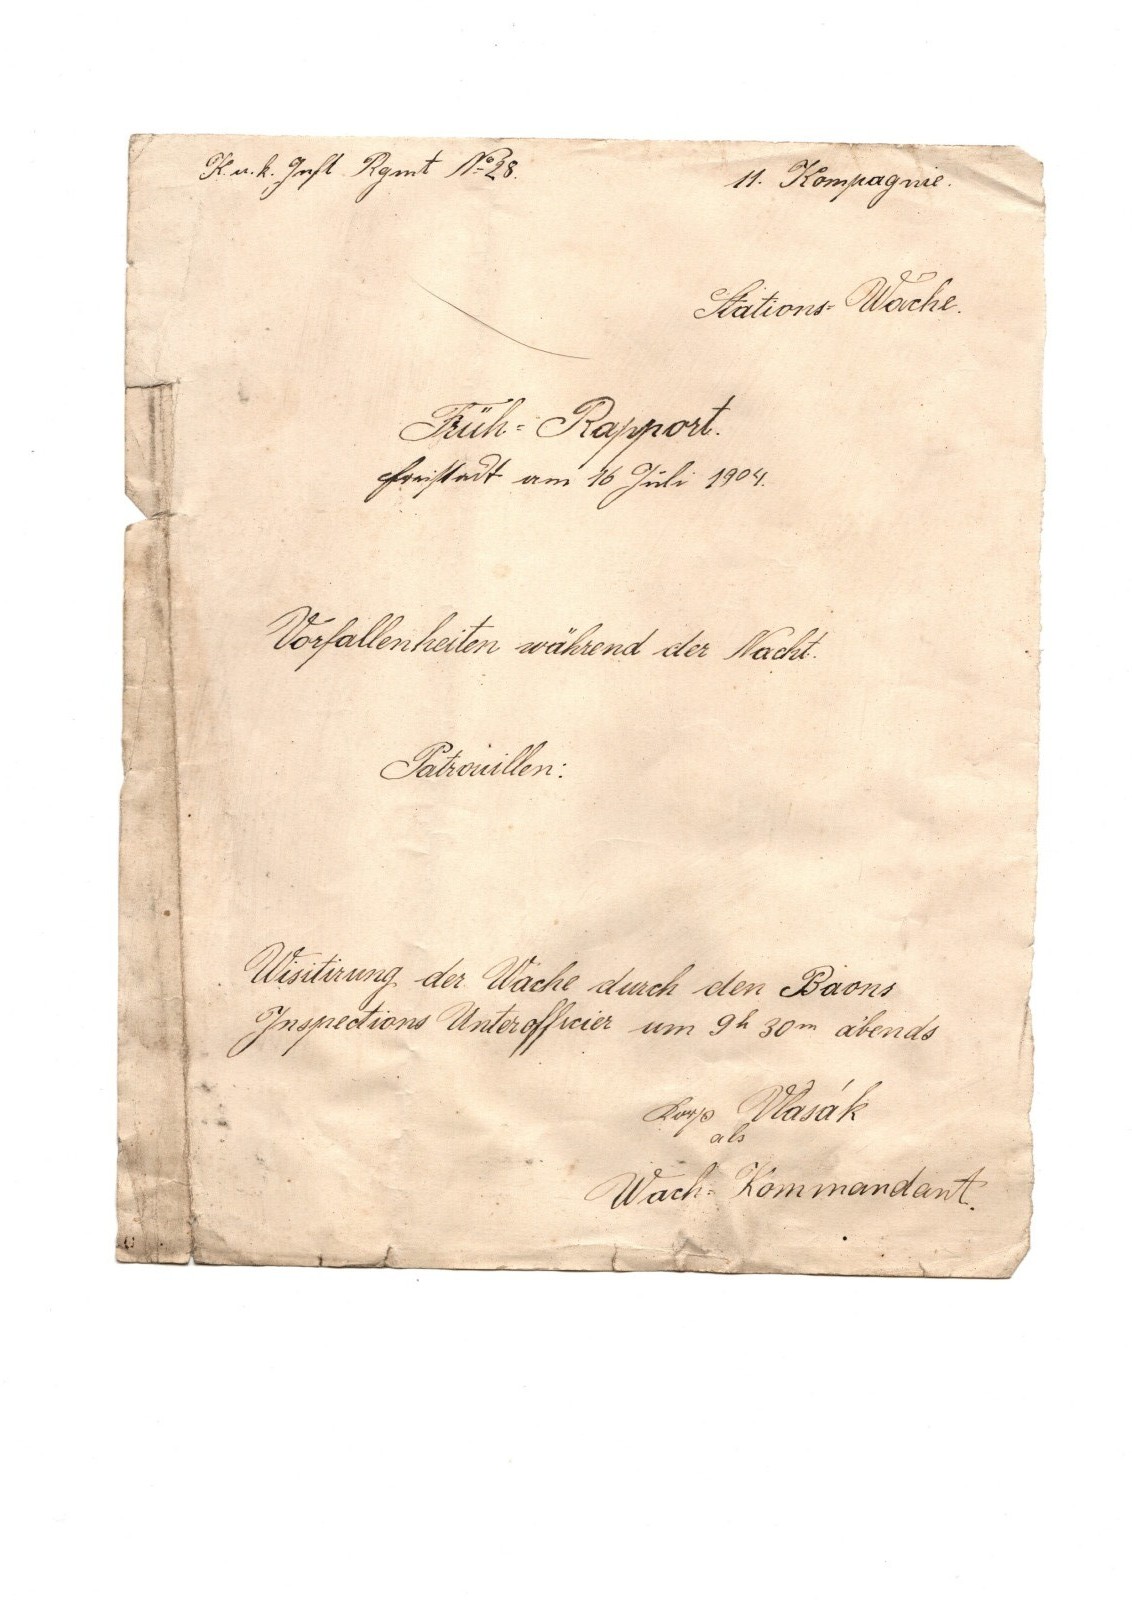 K. u. k. Inft Rgmt No 28.
11. Kompagnie.
Stations-Wache.
Früh-Rapport.
Freistadt am 16 Juli 1904.
Vorfallenheiten während der Nacht.
Patrouillen:
Wisitirung der Wache durch den Baons
Inspections Unterofficier um 9h 30m abends
Korp Vlasák
als
Wach-Kommandant.